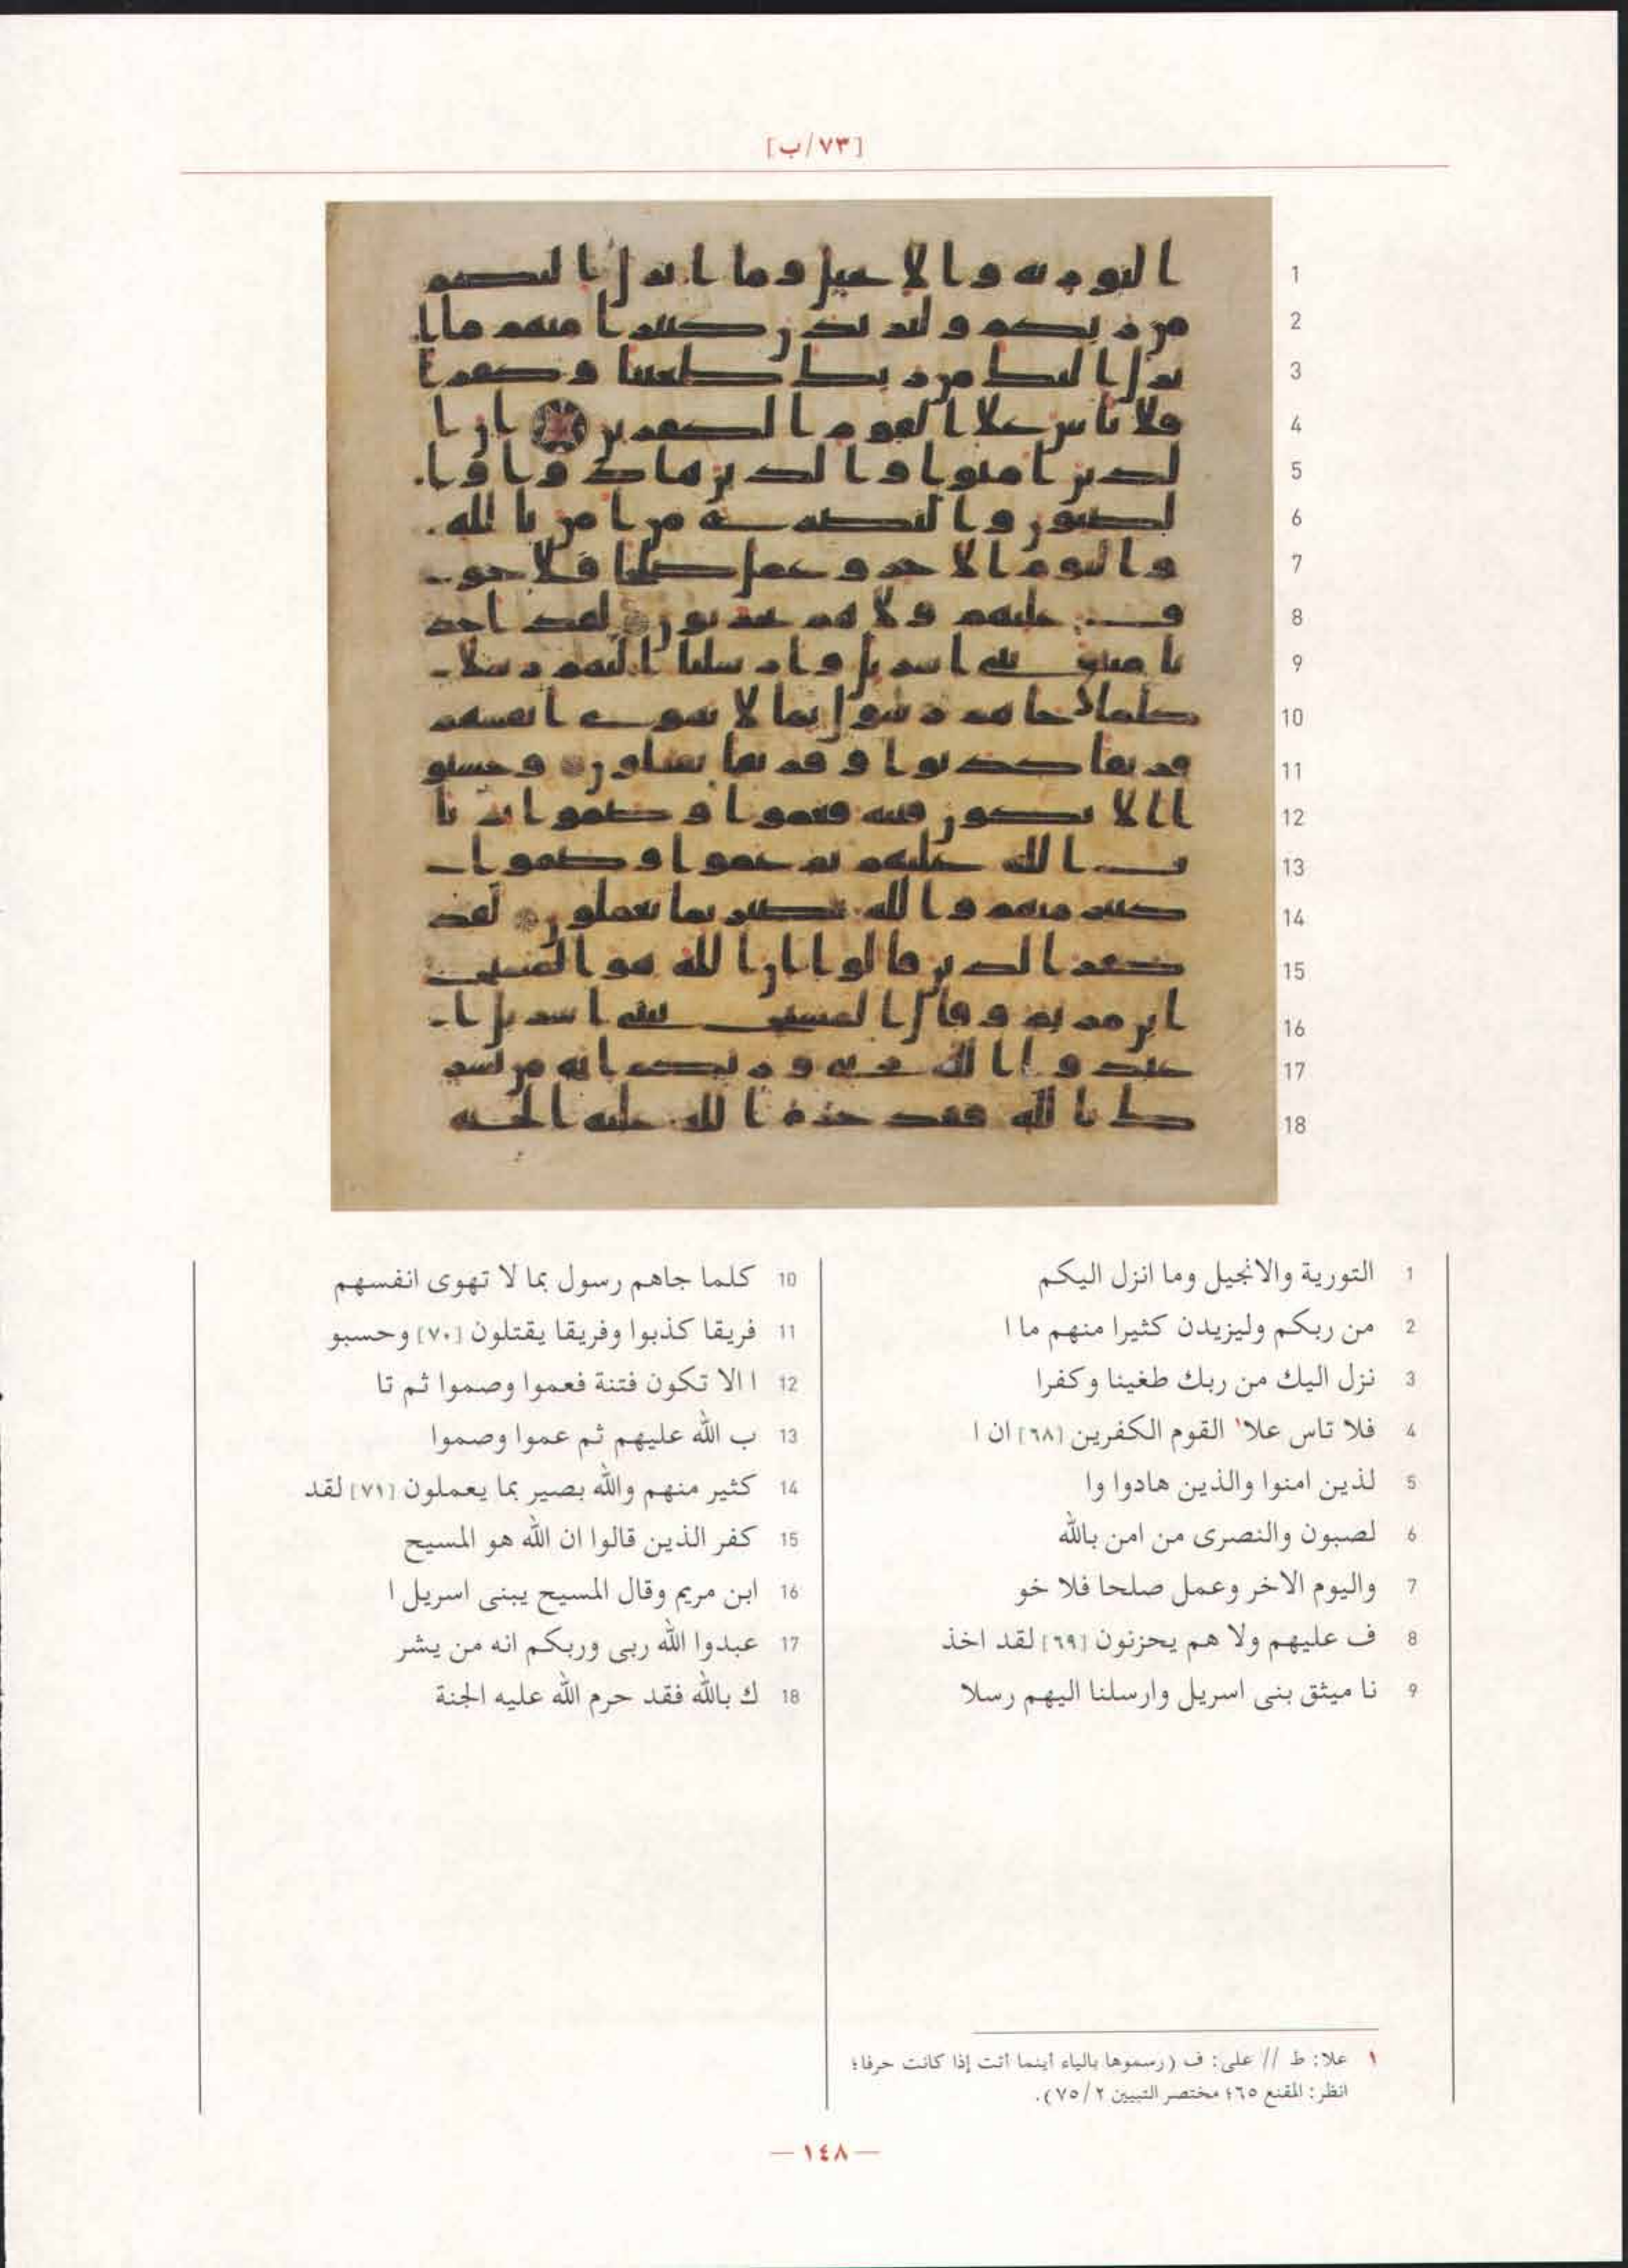 [٧٣/ب]
1 التورية والانجيل وما انزل اليكم
2 من ربكم وليزيدن كثيرا منهم ما ا
3 نزل اليك من ربك طغينا وكفرا
4 فلا تاس علا١ القوم الكفرين [٦٨] ان ا
5 لذين امنوا والذين هادوا وا
6 لصبون والنصرى من امن بالله
7 واليوم الاخر وعمل صلحا فلا خو
8 ف عليهم ولا هم يحزنون [٦٩] لقد اخذ
9 نا ميثق بنى اسريل وارسلنا اليهم رسلا
10 كلما جاهم رسول بما لا تهوى انفسهم
11 فريقا كذبوا وفريقا يقتلون [٧٠] وحسبو
12 ا الا تكون فتنة فعموا وصموا ثم تا
13 ب الله عليهم ثم عموا وصموا
14 كثير منهم والله بصير بما يعملون [٧١] لقد
15 كفر الذين قالوا ان الله هو المسيح
16 ابن مريم وقال المسيح يبنى اسريل ا
17 عبدوا الله ربى وربكم انه من يشر
18 ك بالله فقد حرم الله عليه الجنة
١ علا: ط // على: ف (رسموها بالياء أينما أتت إذا كانت حرفا؛
انظر: المقنع ٦٥؛ مختصر التبيين ٢/ ٧٥).
— ١٤٨ —